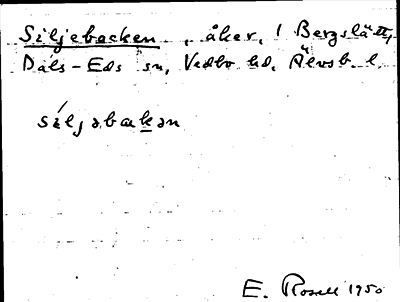 Siljebacken, åker, 1 Bergslätt,
Dals-Eds sn, Vedbo hd, Älvsb. l.
síljəbakən
E. Rosell 1950